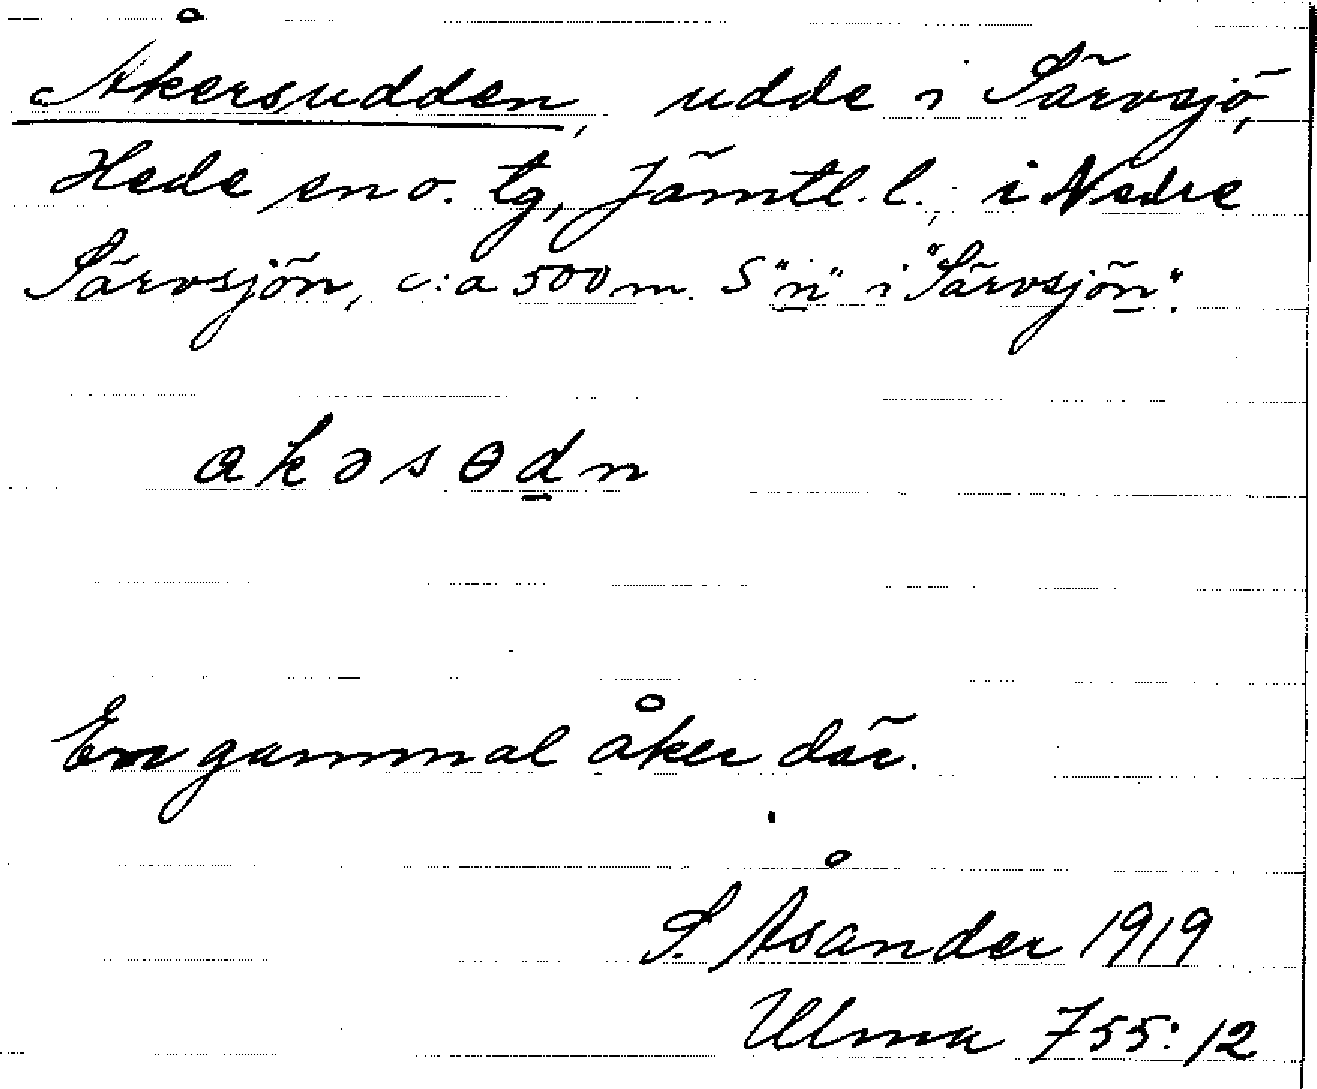 Åkersudden, udde i Särvsjö,
Hede sn o. tg, Jämtl. l., i Nedre
Särvsjön, c:a 500 m. S "n" i "Särvsjön".
akəsɵdn
En gammal åker där.
S. Åsander 1919
Ulma 755:12